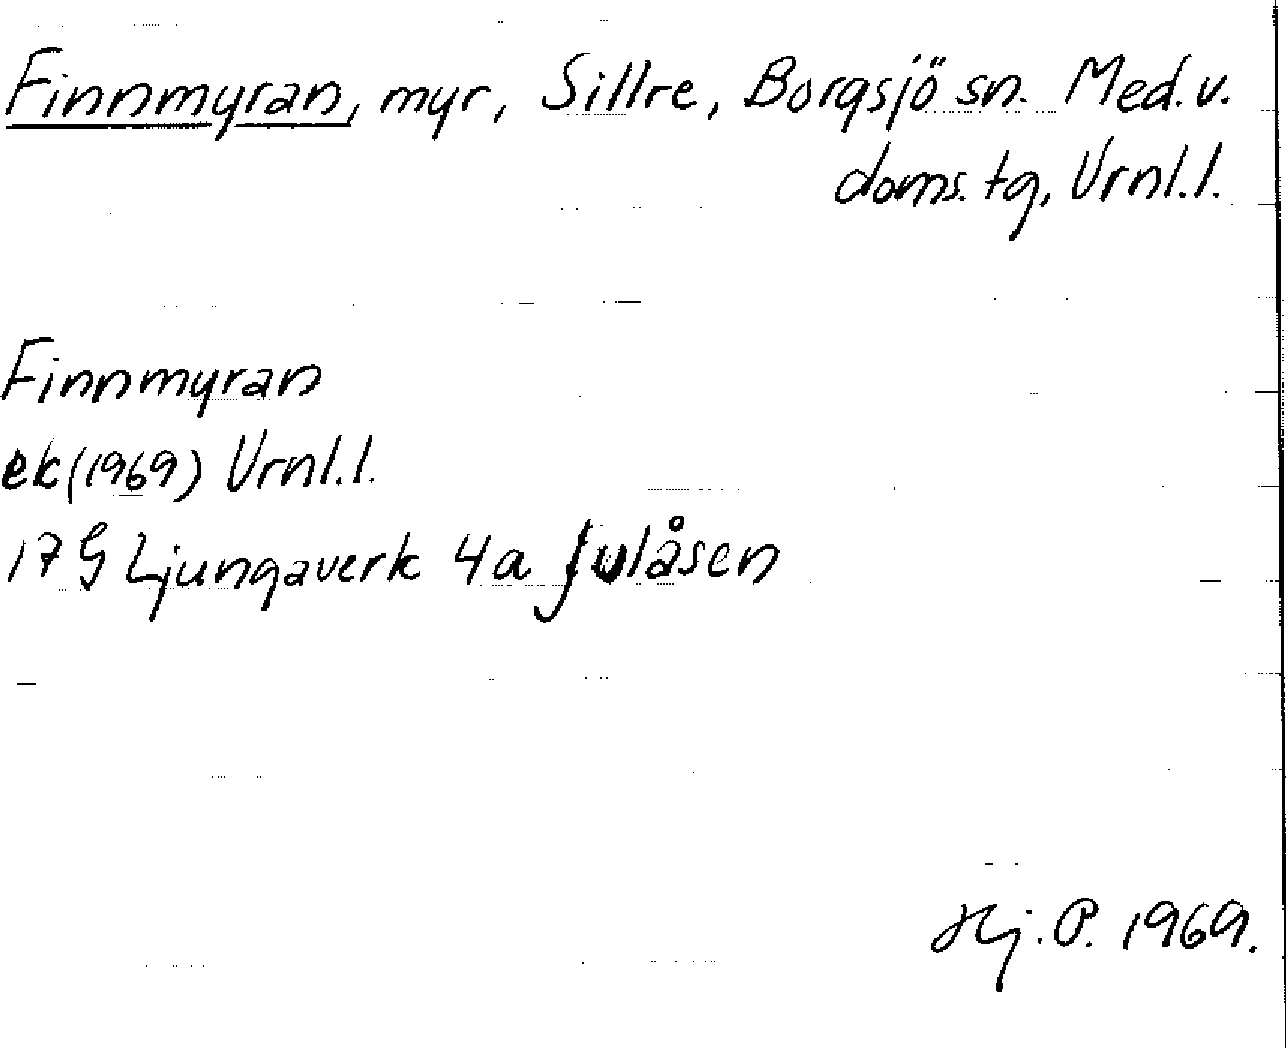 Finnmyran, myr, Sillre, Borgsjö sn. Med. v.
doms. tg, Vrnl. l.
Finnmyran
ek (1969) Vrnl. l.
17 G Ljungaverk 4a Julåsen
Hj. P. 1969.